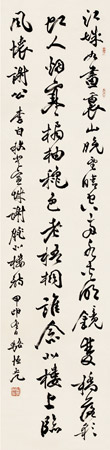 江城如畫裏山晚望晴空兩水夾明鏡雙橋落彩
虹人煙寒橘柚秋色老梧桐誰念北樓上臨
風懷謝公 李白秋登宣城謝朓北樓詩 甲申春駱恒光